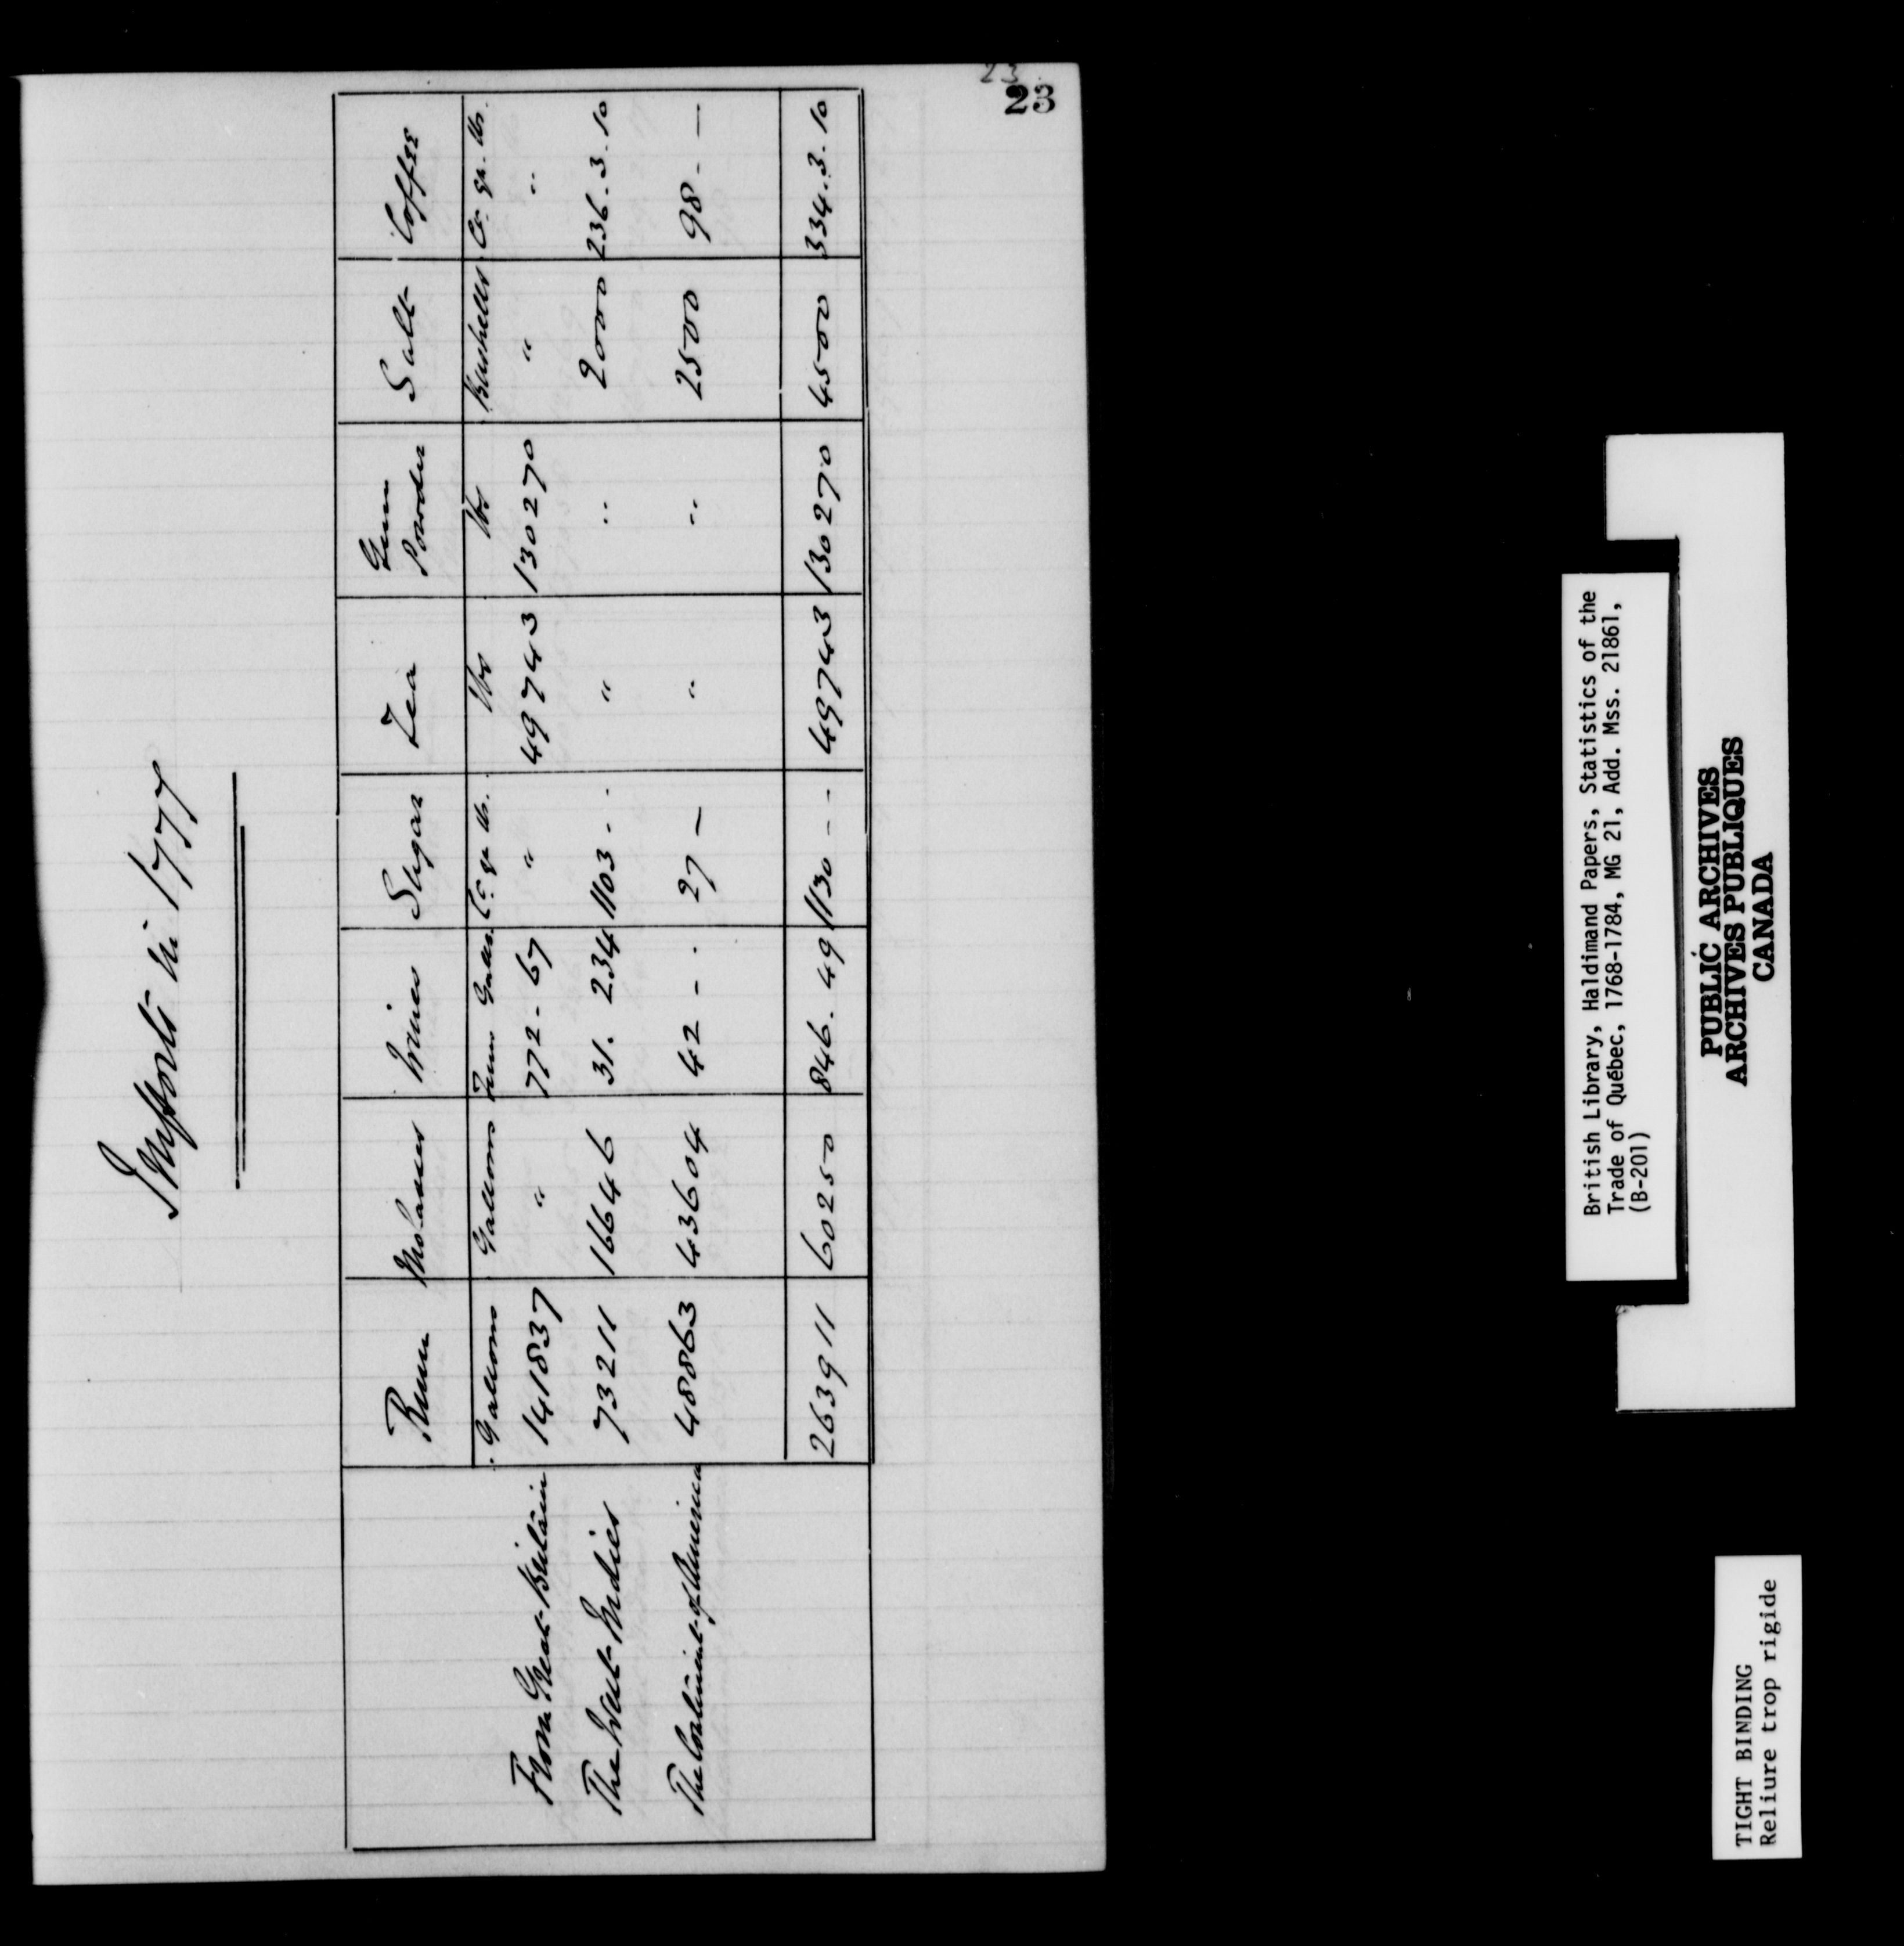 23
23
Imports in 1777
Rum Molasses Wines Sugar Tea Gun Powder Salt Coffee
Gallons Gallons Tuns Galls. Cs qr lbs. lbs lbs Bushells Cs qr. lbs.
From Great Britain 141837 " 772 - 67 " 49743 130270 " "
The West Indies 73211 16646 31. 234 1103 - - " " 2000 236. 3. 10
The Continent of America 48863 43604 42 - - 27 — " " 2500 98 - —
263911 60250 846. 49 1130 - - 49743 130270 4500 334. 3. 10
British Library, Haldimand Papers, Statistics of the
Trade of Québec, 1768-1784, MG 21, Add. Mss. 21861,
(B-201)
PUBLIC ARCHIVES
ARCHIVES PUBLIQUES
CANADA
TIGHT BINDING
Reliure trop rigide